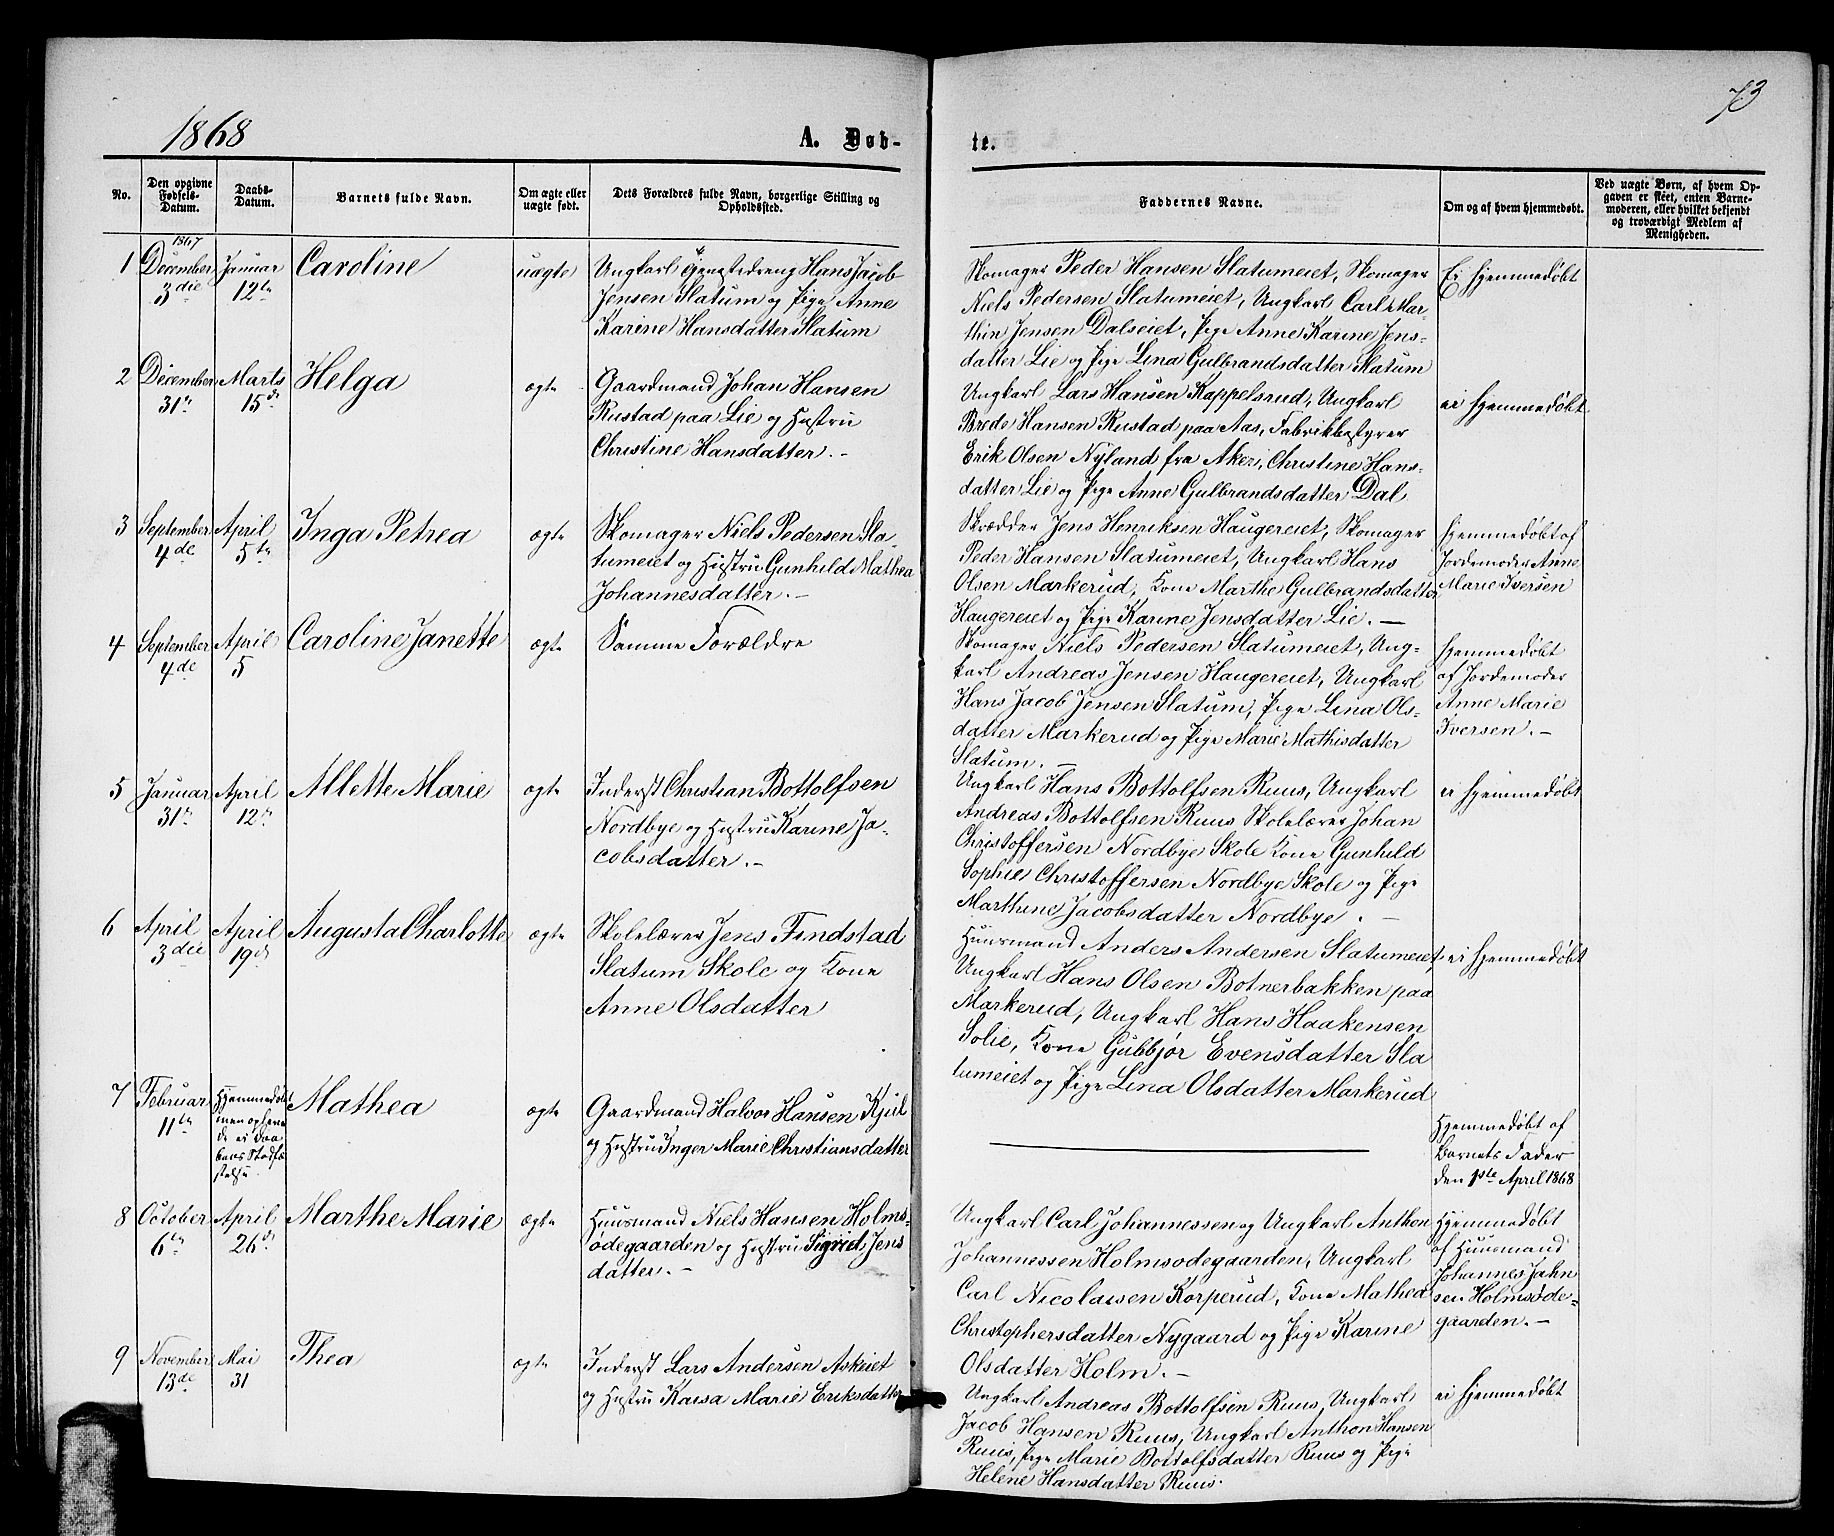 1868
A. Døb-
te.
73
No.
Den opgivne
Fødsels-
Datum.
Daabs-
Datum.
Barnets fulde Navn.
Om ægte eller
uægte født.
Dets Forældres fulde Navn, borgerlige Stilling og
Opholdssted.
Faddernes Navne.
Om og af hvem hjemmedøbt.
Ved uægte Børn, af hvem Op-
gaven er skeet, enten Barne-
moderen, eller hvilket bekjendt
og troværdigt Medlem af
Menigheden.
1
1867
December
3die
Januar
12te
Caroline
uægte
Ungkarl Gjenstedreng Hans Jacob
Jensen Slatum og Pige Anne
Karine Hansdatter Slatum
Skomager Peder Hansen Slatumeiet, Skomager
Niels Pedersen Slatumeiet, Ungkarl Carl Mar-
thin Jensen Dalseiet, Pige Anne Karine Jens-
datter Lie og Pige Lina Gulbrandsdatter Slatum
Ei hjemmedøbt
2
December
31te
Marts
15de
Helga
ægte
Gaardmand Johan Hansen
Rustad paa Lie og Hustru
Christine Hansdatter.-
Ungkarl Lars Hansen Kappelsrud, Ungkarl
Brede Hansen Rustad paa Aas, Fabrikbestyrer
Erik Olsen Nyland fra Aker, Christine Hans-
datter Lie og Pige Anne Gulbrandsdatter Dal
ei hjemmedøbt
3
September
4de
April
5te
Inga Petrea
ægte
Skomager Niels Pedersen Sla-
tumeiet og Hustru Gunhild Mathea
Johannesdatter.-
Skrædder Jens Henriksen Haugereiet, Skomager
Peder Hansen Slatumeiet, Ungkarl Hans
Olsen Markerud, Kone Marthe Gulbrandsdatter
Haugereiet og Pige Karine Jensdatter Lie.-
hjemmedøbt af
Jordemoder Anne
Marie Iversen
4
September
4de
April
5
Caroline Janette
ægte
Samme Forældre
Skomager Niels Pedersen Slatumeiet, Ung-
karl Andreas Jensen Haugereiet, Ungkarl
Hans Jacob Jensen Slatum, Pige Lina Ols-
datter Markerud og Pige Marie Mathisdatter
Slatum.-
hjemmedøbt
af Jordemoder
Anne Marie
Iversen.-
5
Januar
31te
April
12te
Allette Marie
ægte
Inderst Christian Bottolfsen
Nordbye og Hustru Karine Ja-
cobsdatter.-
Ungkarl Hans Bottolfsen Ruus, Ungkarl
Andreas Bottolfsen Ruus Skolelærer Johan
Christoffersen Nordbye Skole Kone Gunhild
Sophie Christoffersen Nordbye Skole og Pige
Marthine Jacobsdatter Nordbye.-
ei hjemmedøbt
6
April
3die
April
19de
Augusta Charlotte
ægte
Skolelærer Jens Findstad
Slatum Skole og Kone
Anne Olsdatter
Huusmand Anders Andersen Slatumeiet,
Ungkarl Hans Olsen Botnerbakken paa
Markerud, Ungkarl Hans Haakensen
Solie, Kone Gubbjør Evensdatter Sla
tumeiet og Pige Lina Olsdatter Markerud
ei hjemmedøbt
7
Februar
11te
Hjemmedøbt
men opleve
de ei Daa
bens Stadfæ
stelse.
Mathea
ægte
Gaardmand Halvor Hansen Kjul
og Hustru Inger Marie Christiansdatter
Hjemmedøbt af
Barnets Fader
den 1ste April 1868
8
October
6te
April
26de
Marthe Marie
ægte
Huusmand Niels Hansen Holms-
ødegaarden og Hustru Sigrid Jens
datter.-
Ungkarl Carl Johannessen og Ungkarl Anthon
Johannessen Holmsødegaarden, Ungkarl
Carl Nicolaisen Korperud, Kone Mathea
Christophersdatter Nygaard og Pige Karine
Olsdatter Holm.-
Hjemmedøbt
af Huusmand
Johannes Jahn
sen Holmsøde-
gaarden.-
9
November
13de
Mai
31
Thea
ægte
Inderst Lars Andersen Askeiet
og Hustru Kaisa Marie Eriksdatter
Ungkarl Andreas Bottolfsen Ruus, Ungkarl
Jacob Hansen Ruus, Ungkarl Anthon Hansen
Ruus, Pige Marie Bottolfsdatter Ruus og Pige
Helene Hansdatter Ruus.
ei hjemmedøbt